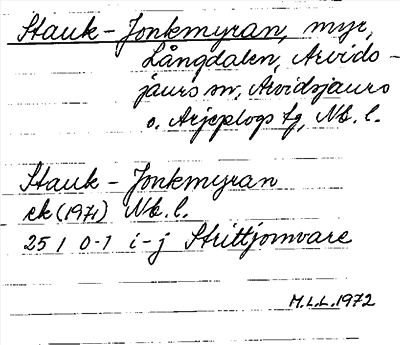 Stauk-Jonkmyran, myr,
Långdalen, Arvids-
jaurs sn, Arvidsjaurs
o. Arjeplogs tg, Nb. l.
Stauk-Jonkmyran
ek (1971) Nb. l.
25 I 0-1 i-j Strittjomvare
M.L.L. 1972